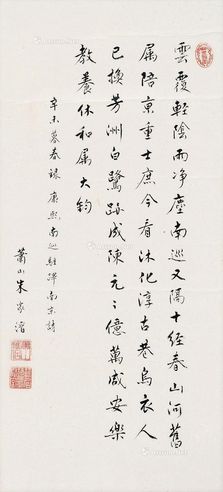 雲覆輕陰雨净塵南巡又隔十經春山河舊
属陪京重士庶今看沐化淳古巷烏衣人
已換芳洲白鷺跡成陳元々億萬咸安樂
教養休和屬大鈞
辛未暮春錄康熙南巡駐蹕南京詩
蕭山朱家濂